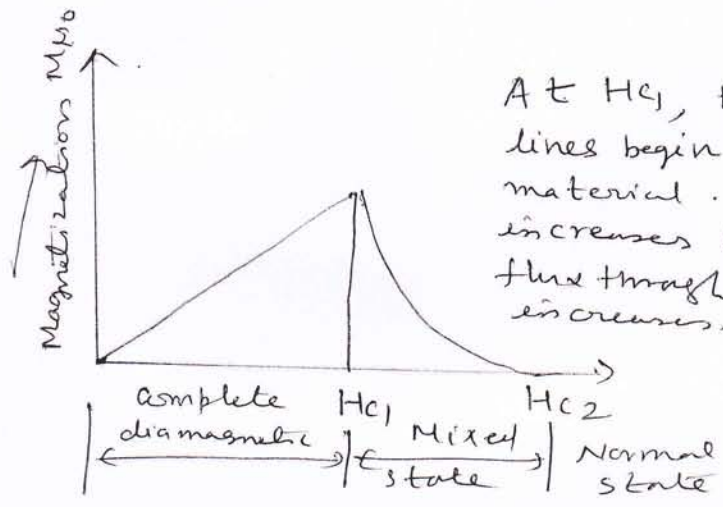 Magnetizations Mμ0
At Hc1,
lines begin
material.
increases
flux through
increases.
Complete
diamagnetic
Hc1
Mixed
state
Hc2
Normal
state